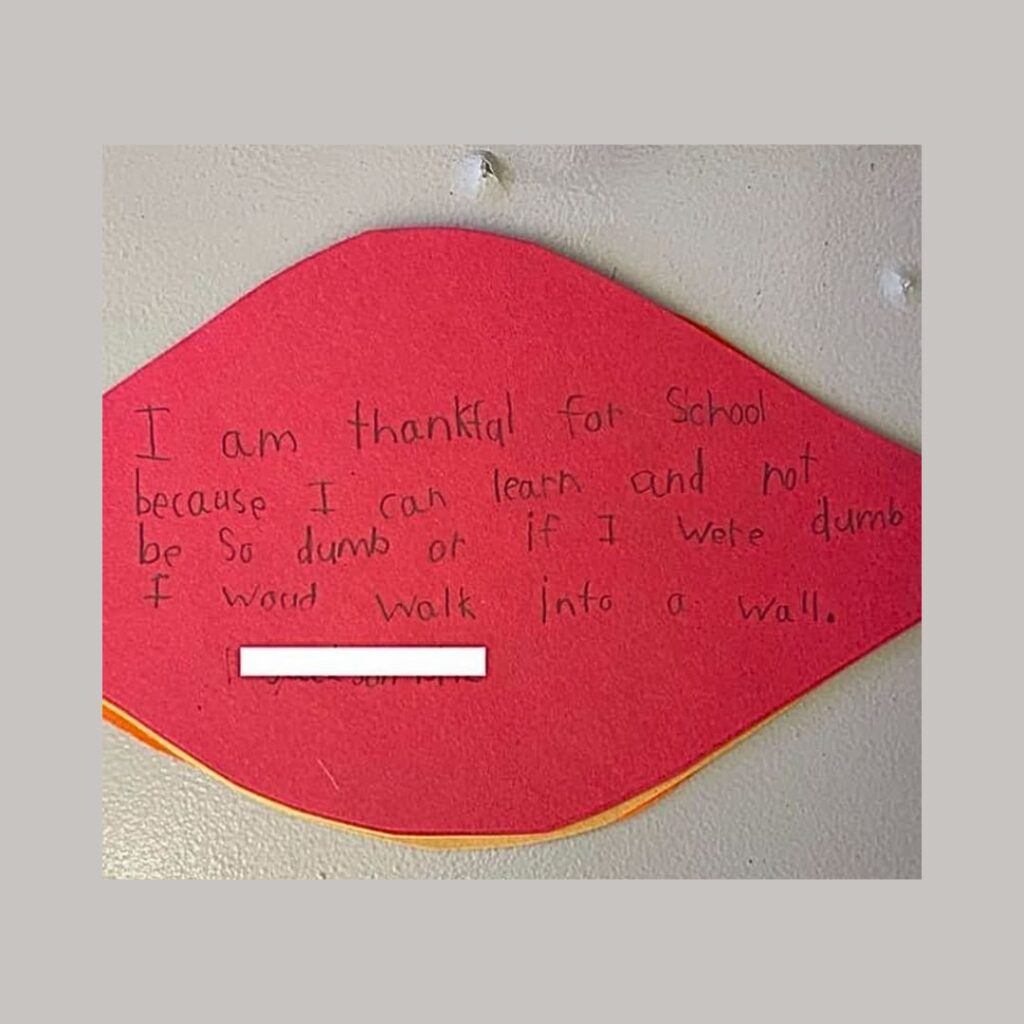 I am thankful for School
because I can learn and not
be So dumb or if I were dumb
I woud walk into a wall.